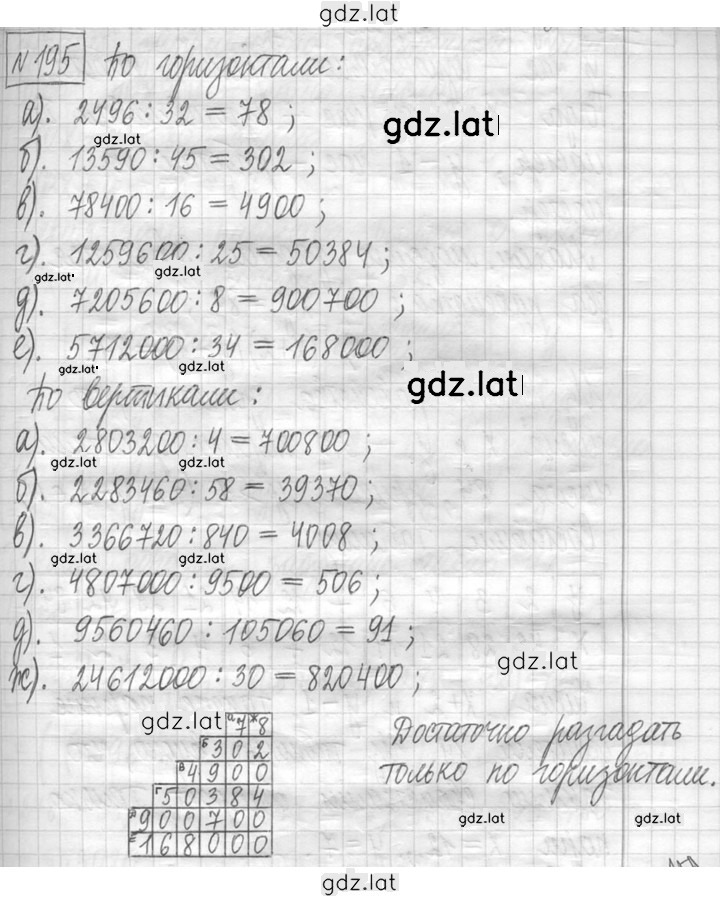 gdz.lat
№195 По горизонтали:
а). 2496 : 32 = 78 ;
gdz.lat
gdz.lat
б). 13590 : 45 = 302 ;
в). 78400 : 16 = 4900 ;
г). 1259600 : 25 = 50384 ;
gdz.lat
gdz.lat
д). 7205600 : 8 = 900700 ;
е). 5712000 : 34 = 168000 ;
gdz.lat
gdz.lat
gdz.lat
По вертикали :
а). 2803200 : 4 = 700800 ;
gdz.lat
gdz.lat
б). 2283460 : 58 = 39370 ;
в). 3366720 : 840 = 4008 ;
gdz.lat
gdz.lat
г). 4807000 : 9500 = 506 ;
д). 9560460 : 105060 = 91 ;
gdz.lat
ж). 24612000 : 30 = 820400 ;
gdz.lat
а7 ж8
б3 0 2
в4 9 0 0
г5 0 3 8 4
д9 0 0 7 0 0
е1 6 8 0 0 0
Достаточно разгадать
только по горизонтали.
gdz.lat
gdz.lat
gdz.lat